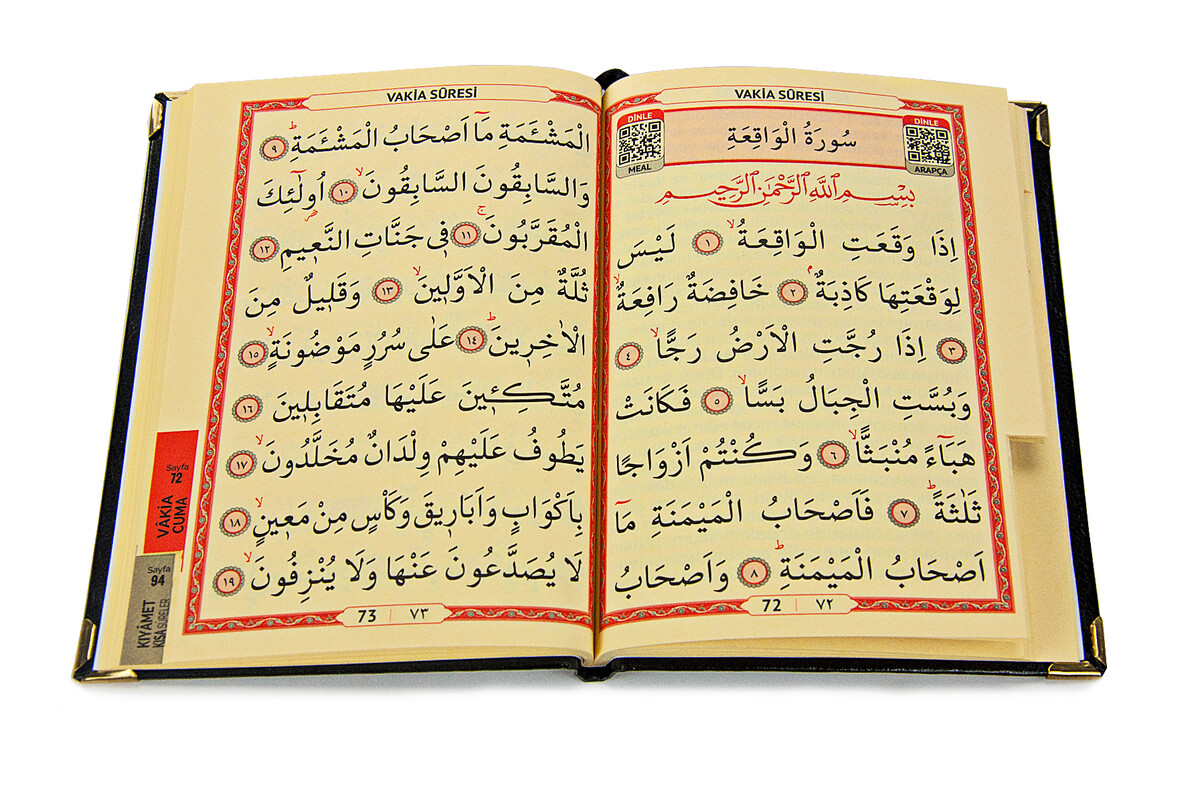 VAKİA SÛRESİ
DİNLE
MEAL
سُورَةُ الْوَاقِعَةِ
DİNLE
ARAPÇA
بِسْمِ اللّٰهِ الرَّحْمٰنِ الرَّحِيمِ
اِذَا وَقَعَتِ الْوَاقِعَةُۙ ﴿١﴾ لَيْسَ
لِوَقْعَتِهَا كَاذِبَةٌۘ ﴿٢﴾ خَافِضَةٌ رَافِعَةٌۙ
﴿٣﴾ اِذَا رُجَّتِ الْاَرْضُ رَجًّاۙ ﴿٤﴾
وَبُسَّتِ الْجِبَالُ بَسًّاۙ ﴿٥﴾ فَكَانَتْ
هَبَٓاءً مُنْبَثًّاۙ ﴿٦﴾ وَكُنْتُمْ اَزْوَاجًا
ثَلٰثَةًۜ ﴿٧﴾ فَاَصْحَابُ الْمَيْمَنَةِ مَٓا
اَصْحَابُ الْمَيْمَنَةِۜ ﴿٨﴾ وَاَصْحَابُ
72 | ٧٢
VAKİA SÛRESİ
الْمَشْـَٔمَةِ مَٓا اَصْحَابُ الْمَشْـَٔمَةِۜ ﴿٩﴾
وَالسَّابِقُونَ السَّابِقُونَۙ ﴿١٠﴾ اُولٰٓئِكَ
الْمُقَرَّبُونَۚ ﴿١١﴾ فِي جَنَّاتِ النَّعِيمِ ﴿١٢﴾
ثُلَّةٌ مِنَ الْاَوَّلِينَۙ ﴿١٣﴾ وَقَلِيلٌ مِنَ
الْاٰخِرِينَۜ ﴿١٤﴾ عَلٰى سُرُرٍ مَوْضُونَةٍۙ ﴿١٥﴾
مُتَّكِـِٔينَ عَلَيْهَا مُتَقَابِلِينَ ﴿١٦﴾
يَطُوفُ عَلَيْهِمْ وِلْدَانٌ مُخَلَّدُونَۙ ﴿١٧﴾
بِاَكْوَابٍ وَاَبَارِيقَ وَكَأْسٍ مِنْ مَعِينٍۙ ﴿١٨﴾
لَا يُصَدَّعُونَ عَنْهَا وَلَا يُنْزِفُونَۙ ﴿١٩﴾
73 | ٧٣
Sayfa
72
VÂKİA
CUMA
Sayfa
94
KIYÂMET
KISA SURELER